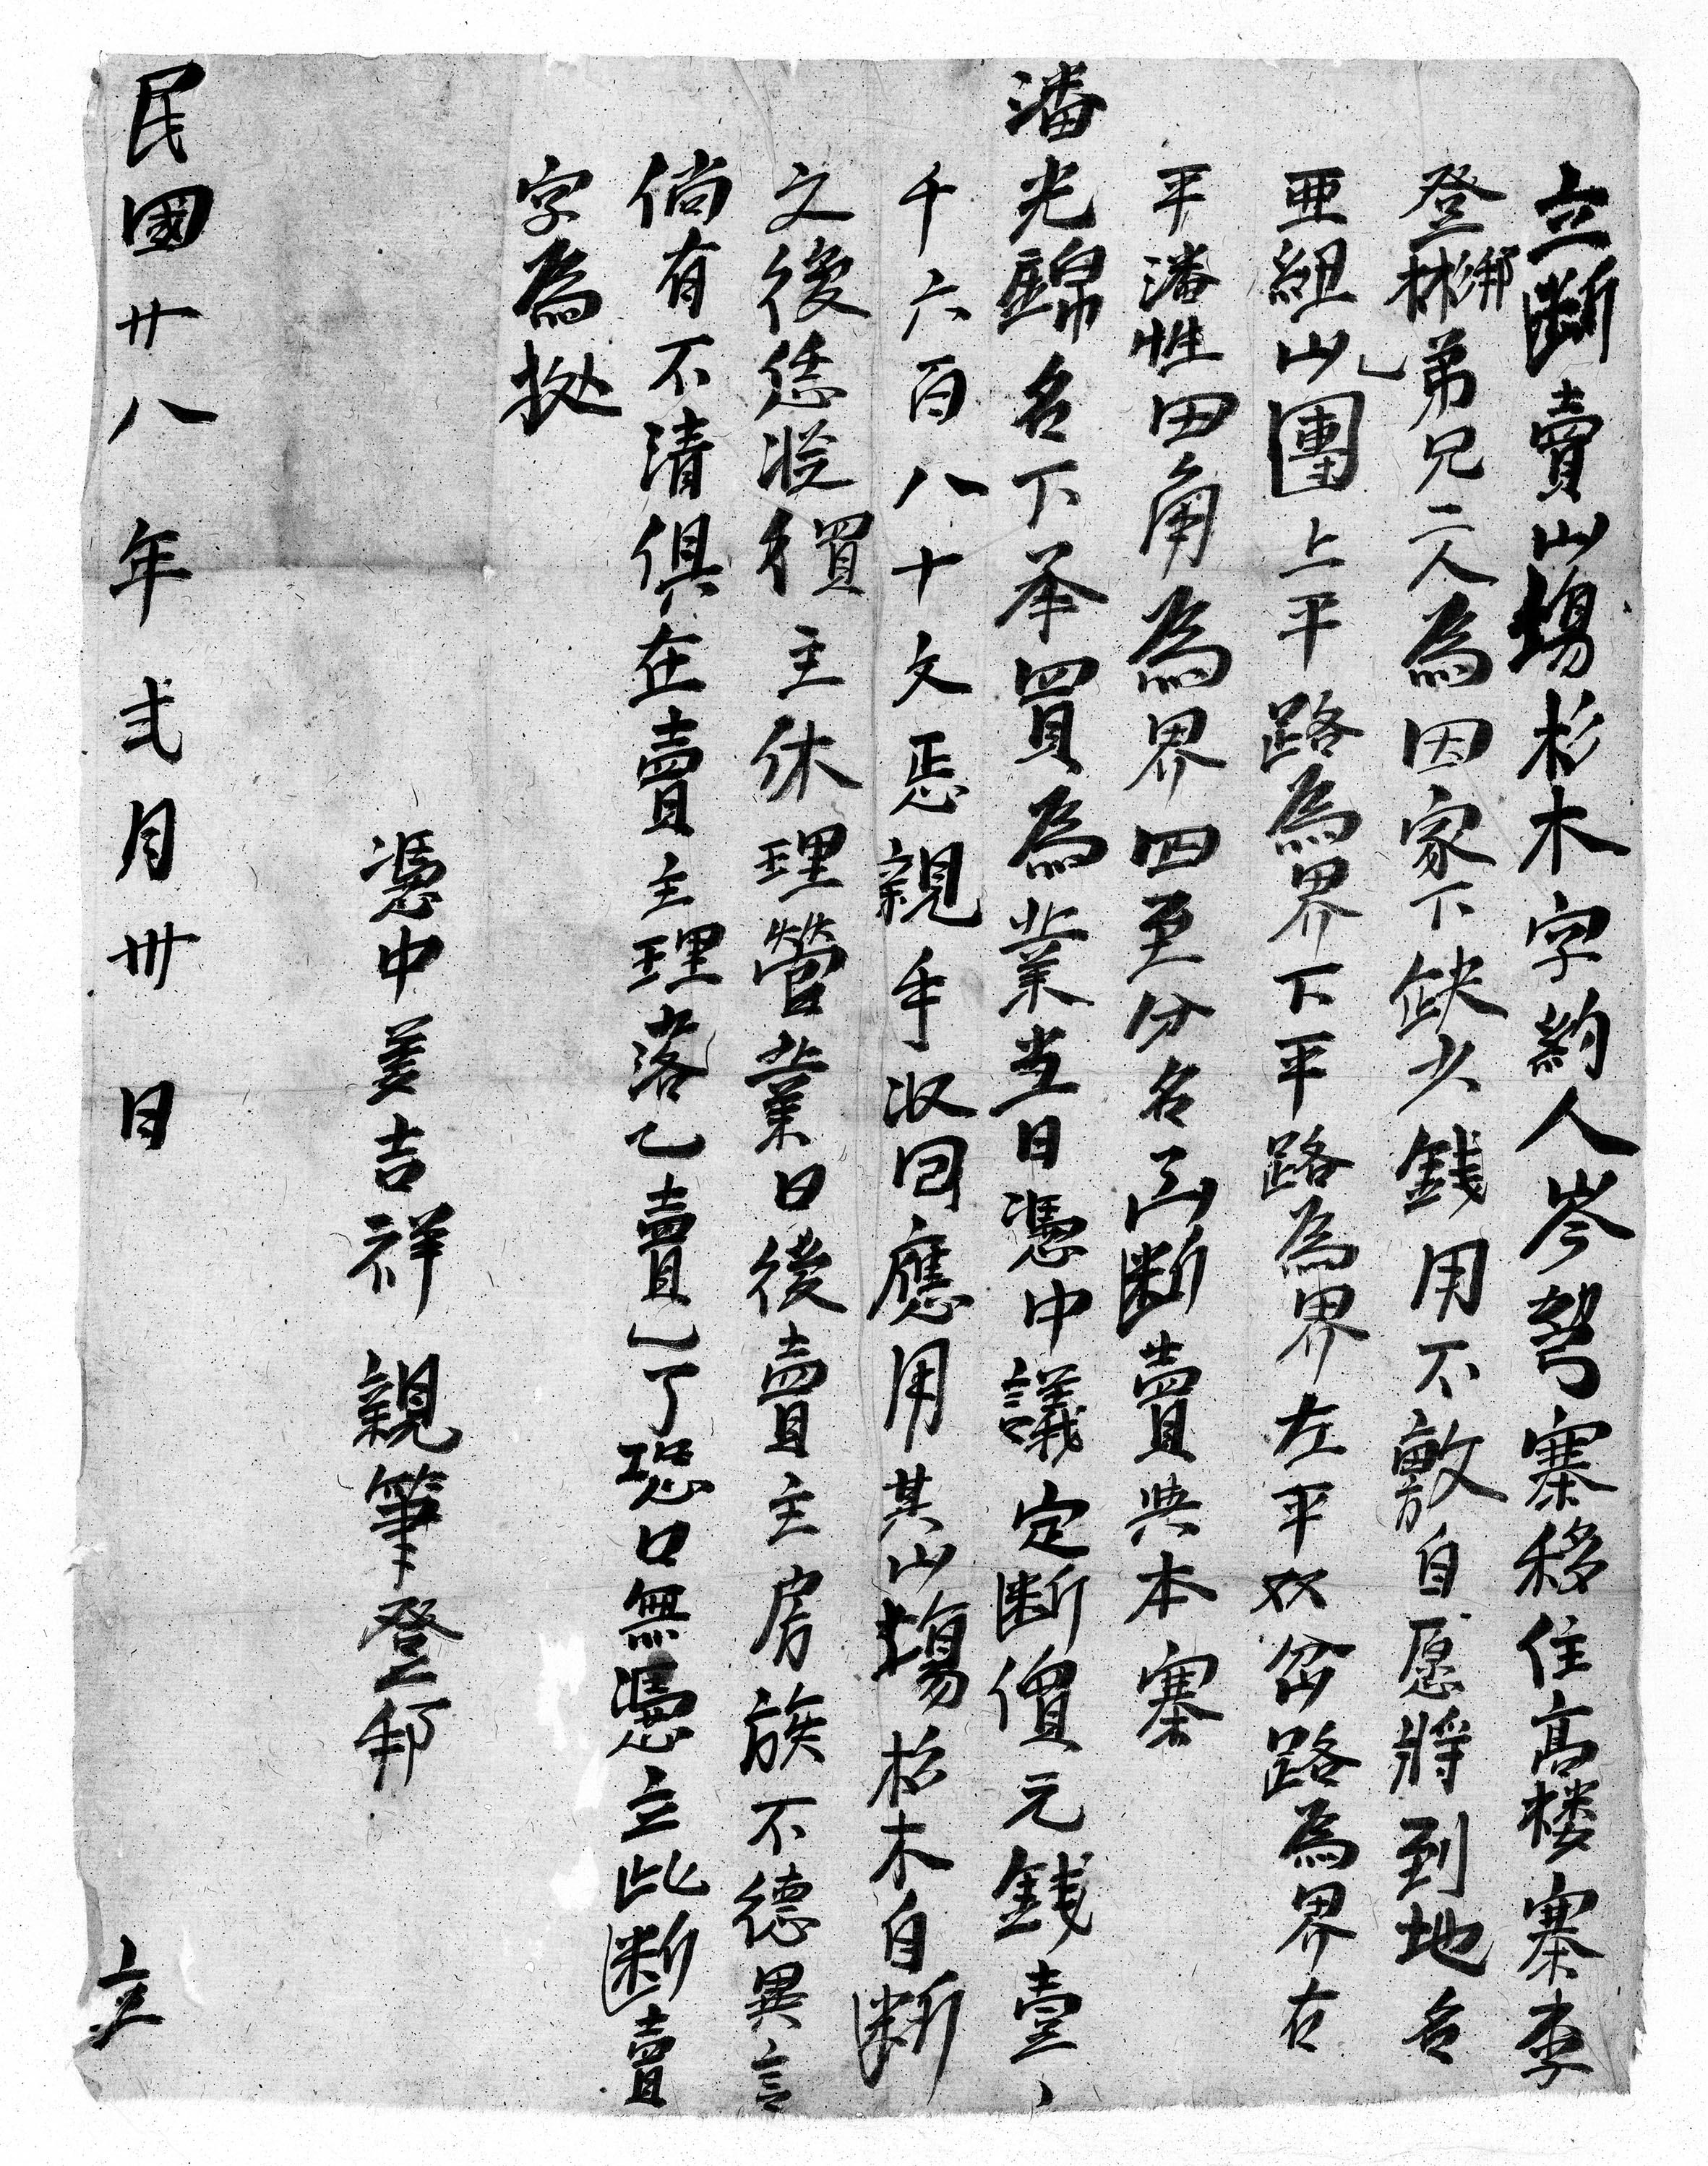 立断賣山塲杉木字約人岑努寨移住高楼寨李
登彬邦弟兄二人為因家下缺少錢用不敷自愿將到地名
亜紐山乚團上平路為界下平路為界左平岔路為界右
平潘性田角為界四至分名出断賣與本寨
潘光錦名下承買為業当日憑中議定断價元錢壹
千六百八十文恁親手收回應用其山塲杉木自断
之後恁從買主休理管業日後賣主房族不德異言
倘有不清俱在賣主理落乙賣乚了恐口無憑立此断賣
字為拠
憑中姜吉祥 親筆登邦
民國廿八年弍月卅日 立